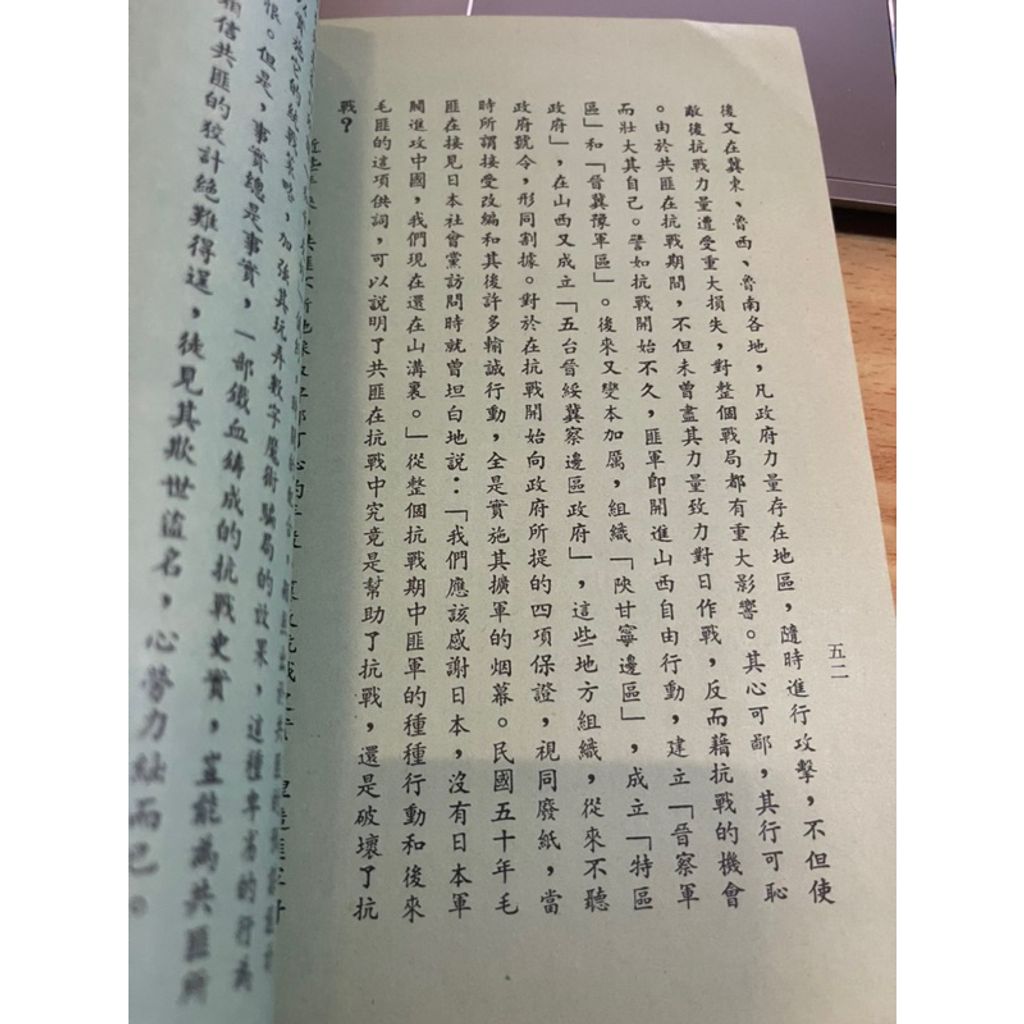 五二
後又在冀東、魯西、魯南各地，凡政府力量存在地區，隨時進行攻擊，不但使
敵後抗戰力量遭受重大損失，對整個戰局都有重大影響。其心可鄙，其行可恥
。由於共匪在抗戰期間，不但未曾盡其力量致力對日作戰，反而藉抗戰的機會
而壯大其自己。譬如抗戰開始不久，匪軍即開進山西自由行動，建立「晉察軍
區」和「晉冀豫軍區」。後來又變本加厲，組織「陝甘寧邊區」，成立「特區
政府」，在山西又成立「五台晉綏冀察邊區政府」，這些地方組織，從來不聽
政府號令，形同割據。對於在抗戰開始向政府所提的四項保證，視同廢紙，當
時所謂接受改編和其後許多輸誠行動，全是實施其擴軍的烟幕。民國五十年毛
匪在接見日本社會黨訪問時就曾坦白地說：「我們應該感謝日本，沒有日本軍
閥進攻中國，我們現在還在山溝裏。」從整個抗戰期中匪軍的種種行動和後來
毛匪的這項供詞，可以說明了共匪在抗戰中究竟是幫助了抗戰，還是破壞了抗
戰？
加強其玩弄數字魔術騙局的效果，這種卑劣的行為
恨。但是，事實總是事實，一部鐵血鑄成的抗戰史實，豈能為共匪所
相信共匪的狡計絕難得逞，徒見其欺世盜名，心勞力絀而已。